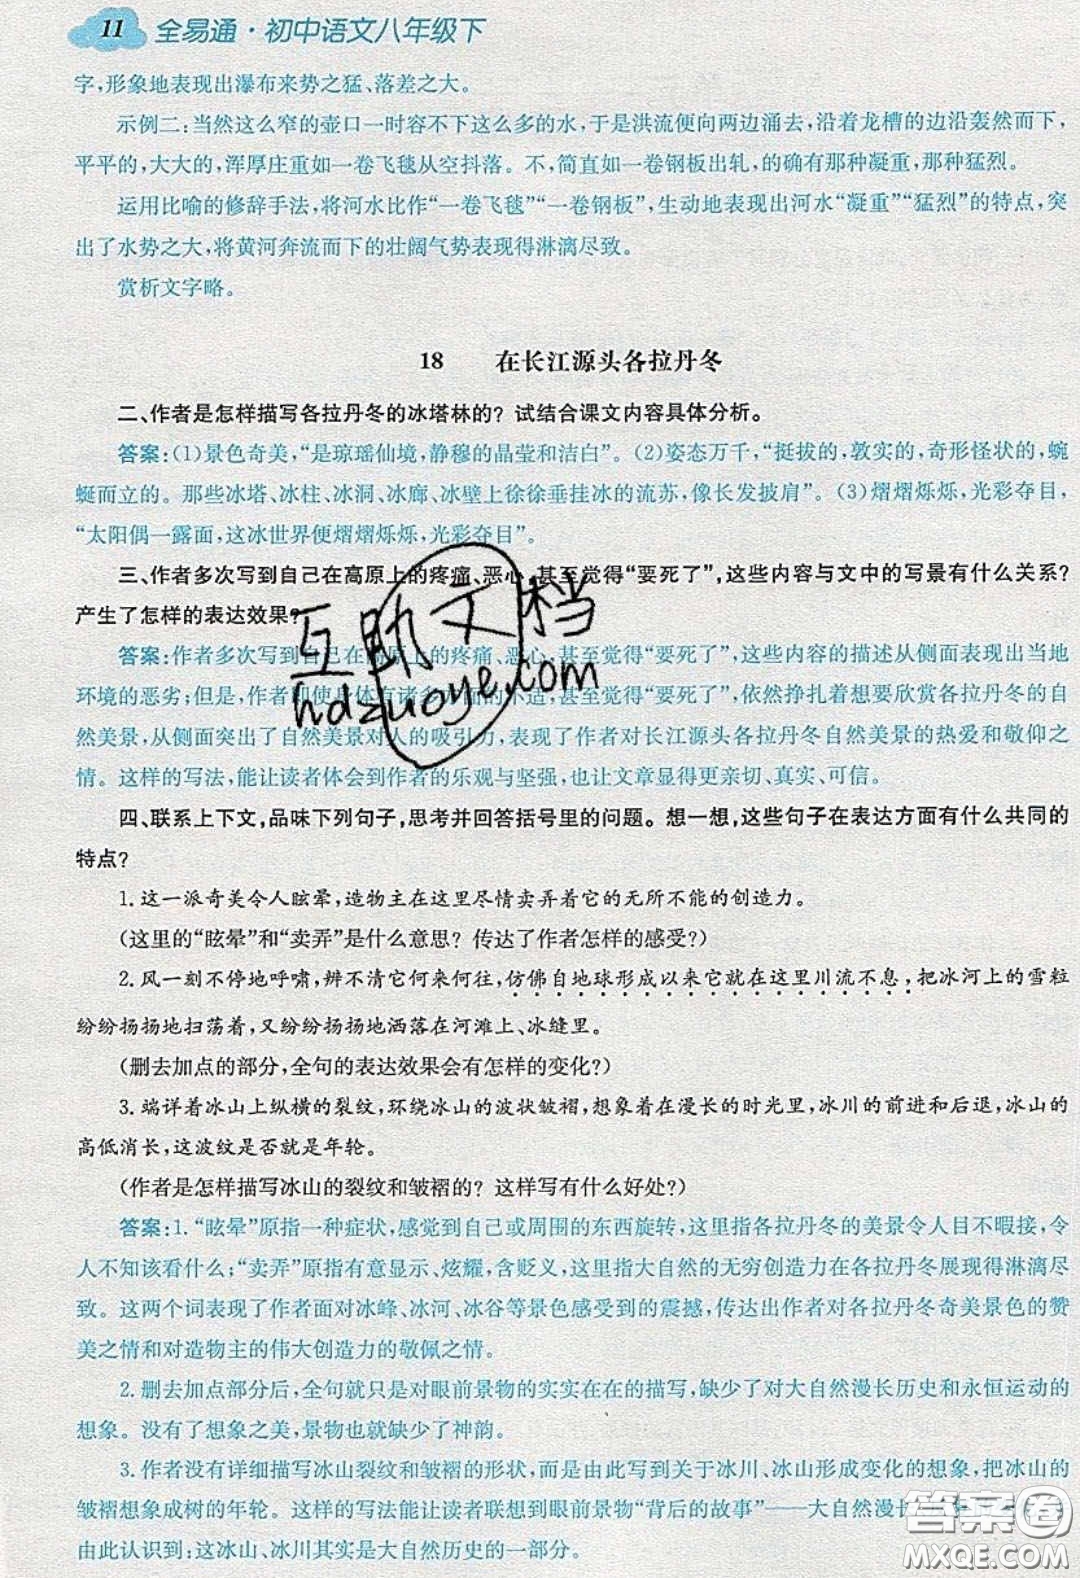 11 全易通·初中语文八年级下
字,形象地表现出瀑布来势之猛、落差之大。
示例二:当然这么窄的壶口一时容不下这么多的水,于是洪流便向两边涌去,沿着龙槽的边沿轰然而下,
平平的,大大的,浑厚庄重如一卷飞毯从空抖落。不,简直如一卷钢板出轧,的确有那种凝重,那种猛烈。
运用比喻的修辞手法,将河水比作“一卷飞毯”“一卷钢板”,生动地表现出河水“凝重”“猛烈”的特点,突
出了水势之大,将黄河奔流而下的壮阔气势表现得淋漓尽致。
赏析文字略。
18 在长江源头各拉丹冬
二、作者是怎样描写各拉丹冬的冰塔林的? 试结合课文内容具体分析。
答案:(1)景色奇美,“是琼瑶仙境,静穆的晶莹和洁白”。(2)姿态万千,“挺拔的,敦实的,奇形怪状的,蜿
蜒而立的。那些冰塔、冰柱、冰洞、冰廊、冰壁上徐徐垂挂冰的流苏,像长发披肩”。(3)熠熠烁烁,光彩夺目,
“太阳偶一露面,这冰世界便熠熠烁烁,光彩夺目”。
三、作者多次写到自己在高原上的疼痛、恶心,甚至觉得“要死了”,这些内容与文中的写景有什么关系?
产生了怎样的表达效果?
答案:作者多次写到自己在高原上的疼痛、恶心,甚至觉得“要死了”,这些内容的描述从侧面表现出当地
环境的恶劣;但是,作者即使身体有诸多方面的不适,甚至觉得“要死了”,依然挣扎着想要欣赏各拉丹冬的自
然美景,从侧面突出了自然美景对人的吸引力,表现了作者对长江源头各拉丹冬自然美景的热爱和敬仰之
情。这样的写法,能让读者体会到作者的乐观与坚强,也让文章显得更亲切、真实、可信。
四、联系上下文,品味下列句子,思考并回答括号里的问题。想一想,这些句子在表达方面有什么共同的
特点?
1.这一派奇美令人眩晕,造物主在这里尽情卖弄着它的无所不能的创造力。
(这里的“眩晕”和“卖弄”是什么意思? 传达了作者怎样的感受?)
2.风一刻不停地呼啸,辨不清它何来何往,仿佛自地球形成以来它就在这里川流不息,把冰河上的雪粒
纷纷扬扬地扫荡着,又纷纷扬扬地洒落在河滩上、冰缝里。
(删去加点的部分,全句的表达效果会有怎样的变化?)
3.端详着冰山上纵横的裂纹,环绕冰山的波状皱褶,想象着在漫长的时光里,冰川的前进和后退,冰山的
高低消长,这波纹是否就是年轮。
(作者是怎样描写冰山的裂纹和皱褶的? 这样写有什么好处?)
答案:1.“眩晕”原指一种症状,感觉到自己或周围的东西旋转,这里指各拉丹冬的美景令人目不暇接,令
人不知该看什么;“卖弄”原指有意显示、炫耀,含贬义,这里指大自然的无穷创造力在各拉丹冬展现得淋漓尽
致。这两个词表现了作者面对冰峰、冰河、冰谷等景色感受到的震撼,传达出作者对各拉丹冬奇美景色的赞
美之情和对造物主的伟大创造力的敬佩之情。
2.删去加点部分后,全句就只是对眼前景物的实实在在的描写,缺少了对大自然漫长历史和永恒运动的
想象。没有了想象之美,景物也就缺少了神韵。
3.作者没有详细描写冰山裂纹和皱褶的形状,而是由此写到关于冰川、冰山形成变化的想象,把冰山的
皱褶想象成树的年轮。这样的写法能让读者联想到眼前景物“背后的故事”——大自然漫长
由此认识到:这冰山、冰川其实是大自然历史的一部分。
互助文档
hdzuoye.com
答案圈
MXQE.COM